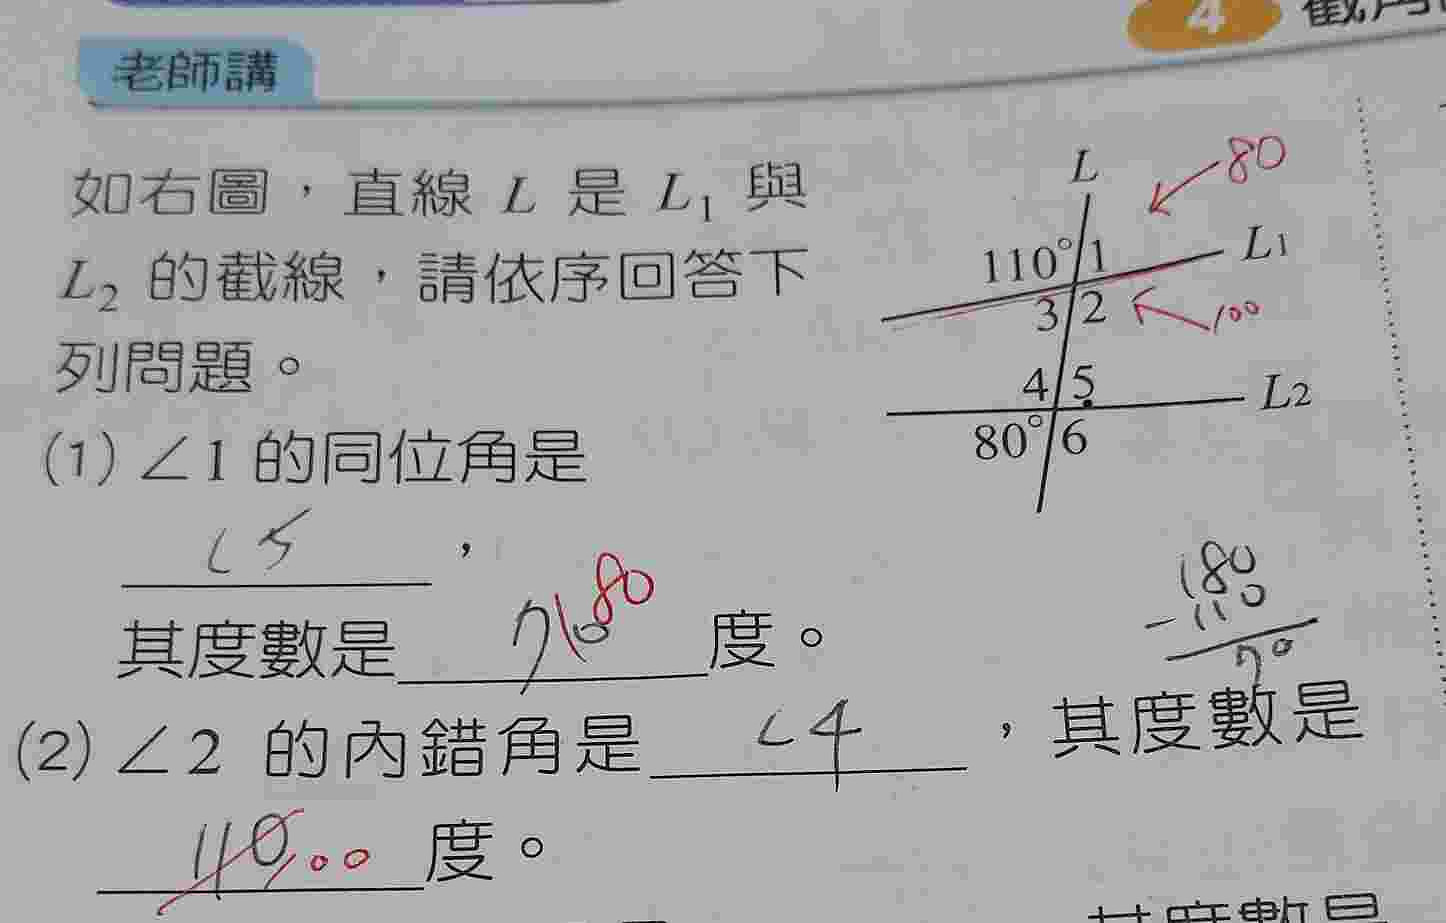 4 截角
老師講
如右圖，直線 L 是 L₁ 與
L₂ 的截線，請依序回答下
列問題。
L
80
110° 1
L1
3 2
100
4 5
L2
80° 6
(1) ∠1 的同位角是
∠5，
其度數是 70 80 度。
180
-110
70
(2) ∠2 的內錯角是 ∠4，其度數是
110 100 度。
其度數是